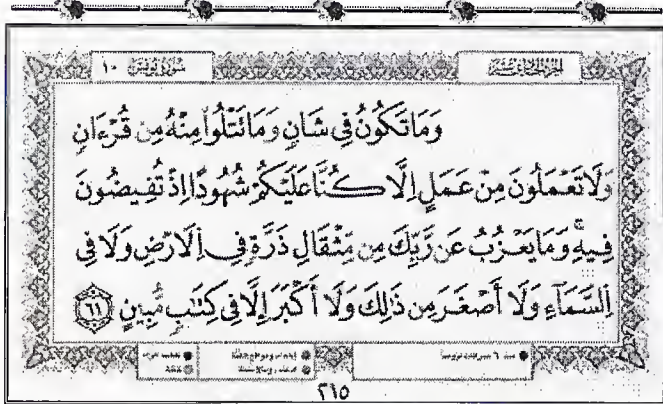 سُورَةُ يُونُسَ ١٠
الجزء الحادي عشر
وَمَا تَكُونُ فِي شَأْنٍ وَمَا تَتْلُوا۟ مِنْهُ مِن قُرْءَانٍ
وَلَا تَعْمَلُونَ مِنْ عَمَلٍ إِلَّا كُنَّا عَلَيْكُمْ شُهُودًا إِذْ تُفِيضُونَ
فِيهِ ۚ وَمَا يَعْزُبُ عَن رَّبِّكَ مِن مِّثْقَالِ ذَرَّةٍ فِي اِلَارْضِ وَلَا فِي
اِلسَّمَآءِ وَلَا أَصْغَرَ مِن ذَٰلِكَ وَلَا أَكْبَرَ إِلَّا فِي كِتَٰبٍ مُّبِينٍ ٦١
٢١٥